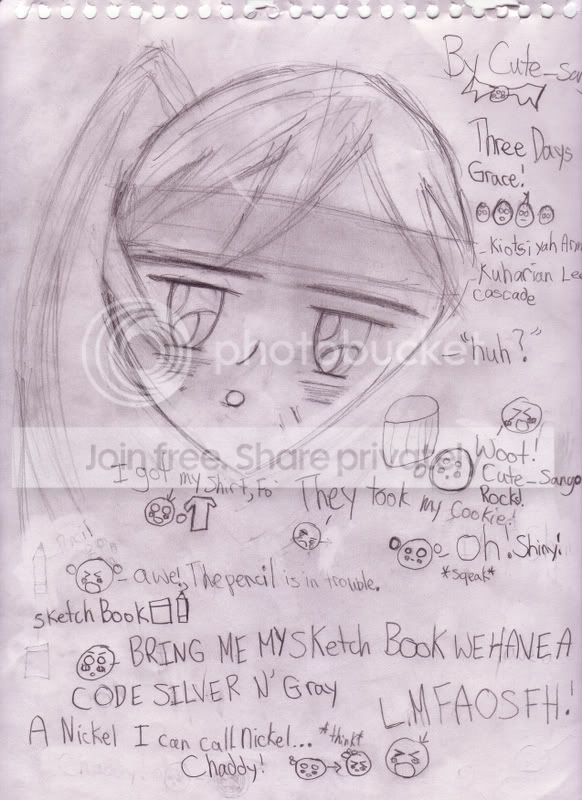 By Cute_Sang
Three Days
Grace!
Kiotsiyah
Kuharian
Cascade
"huh?"
photobucket
Join free. Share privately
Woot!
Cute_Sango
Rocks!
I got my Shirt, Fo
They took my Cookie!
Oh! Shiny!
*sqeak*
awe! The pencil is in trouble.
Sketch Book
BRING ME MY Sketch Book WE HAVE A
CODE SILVER N' Gray
L.MFAOSFH!
A Nickel I can call Nickel... *think*
Chaddy!
Chaddy!